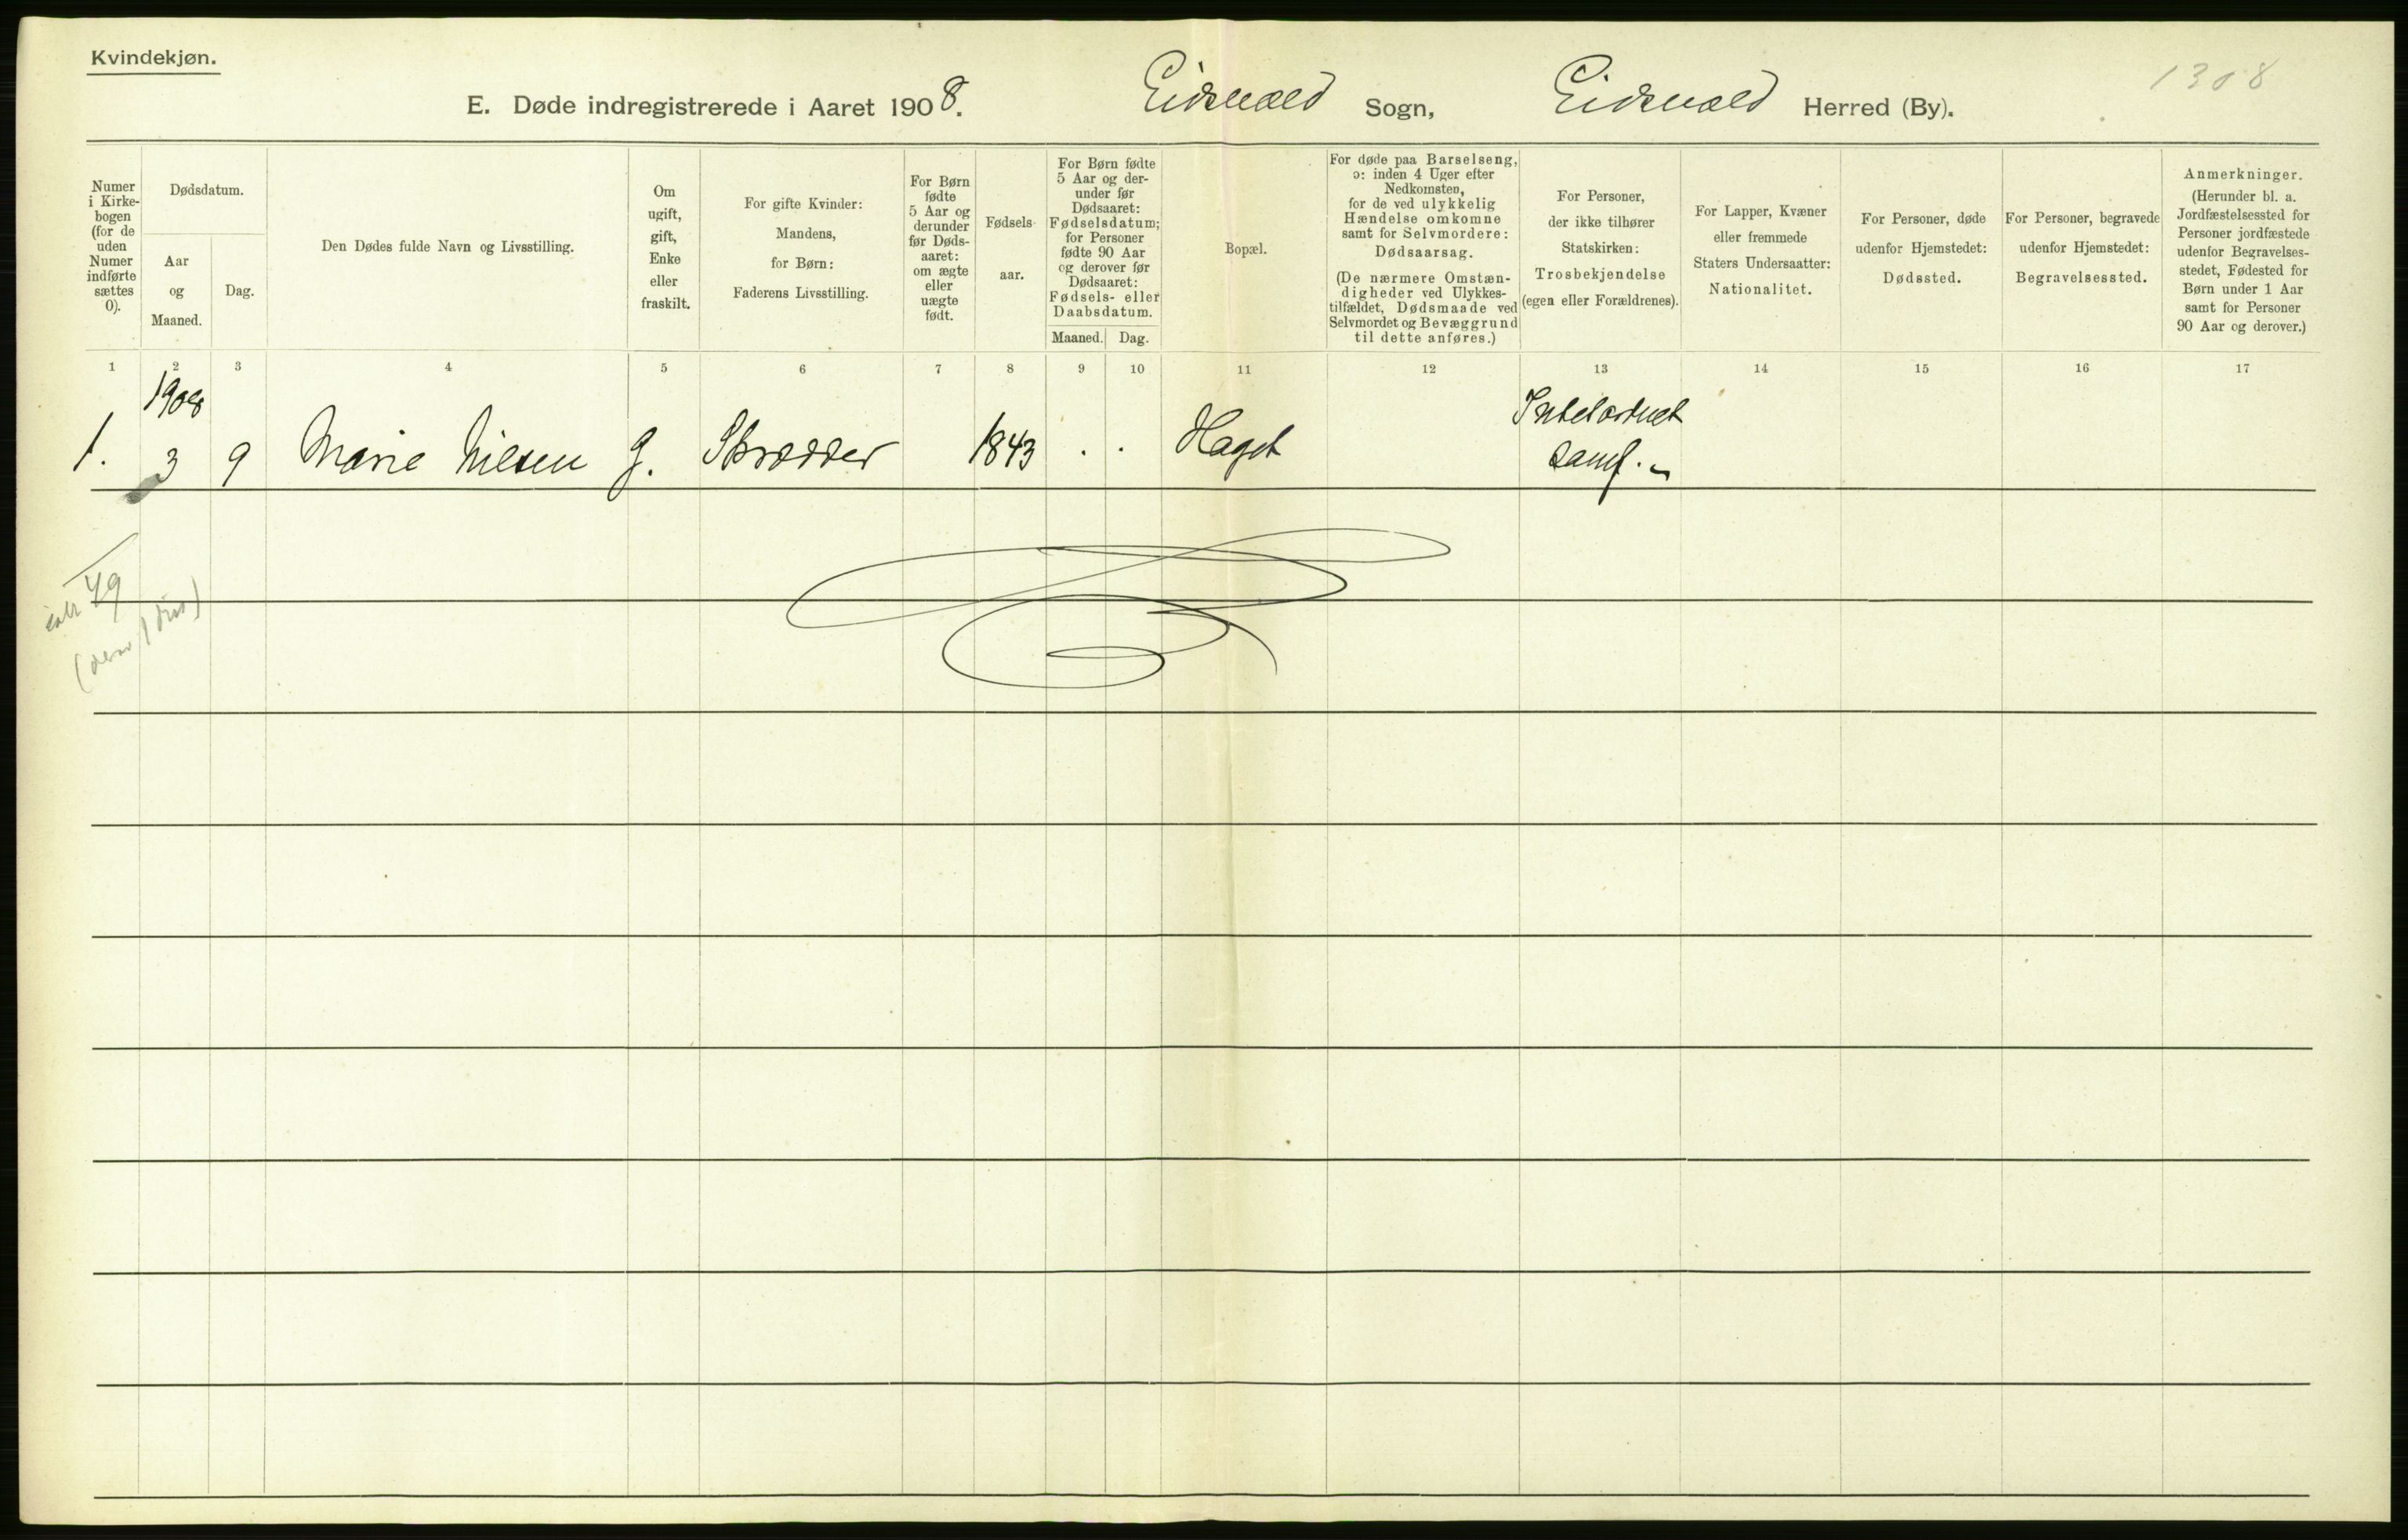 Kvindekjøn.
1308
E. Døde indregistrerede i Aaret 1908. Eidsvold Sogn, Eidsvold Herred (By).
Numer
i Kirke-
bogen
(for de
uden
Numer
indførte
sættes
0).
Dødsdatum.
Aar
og
Maaned.
Dag.
Den Dødes fulde Navn og Livsstilling.
Om
ugift,
gift,
Enke
eller
fraskilt.
For gifte Kvinder:
Mandens,
for Børn:
Faderens Livsstilling.
For Børn
fødte
5 Aar og
derunder
før Døds-
aaret:
om ægte
eller
uægte
født.
Fødsels-
aar.
For Børn fødte
5 Aar og der-
under før
Dødsaaret:
Fødselsdatum;
for Personer
fødte 90 Aar
og derover før
Dødsaaret:
Fødsels- eller
Daabsdatum.
Maaned. Dag.
Bopæl.
For døde paa Barselseng,
ɔ: inden 4 Uger efter
Nedkomsten,
for de ved ulykkelig
Hændelse omkomne
samt for Selvmordere:
Dødsaarsag.
(De nærmere Omstæn-
digheder ved Ulykkes-
tilfældet, Dødsmaade ved
Selvmordet og Bevæggrund
til dette anføres.)
For Personer,
der ikke tilhører
Statskirken:
Trosbekjendelse
(egen eller Forældrenes).
For Lapper, Kvæner
eller fremmede
Staters Undersaatter:
Nationalitet.
For Personer, døde
udenfor Hjemstedet:
Dødssted.
For Personer, begravede
udenfor Hjemstedet:
Begravelsessted.
Anmerkninger.
(Herunder bl. a.
Jordfæstelsessted for
Personer jordfæstede
udenfor Begravelses-
stedet, Fødested for
Børn under 1 Aar
samt for Personer
90 Aar og derover.)
1 2 3 4 5 6 7 8 9 10 11 12 13 14 15 16 17
1908
1. 3 9 Marie Nilsen g. Skrædder 1843 . . Haget
samf.
49